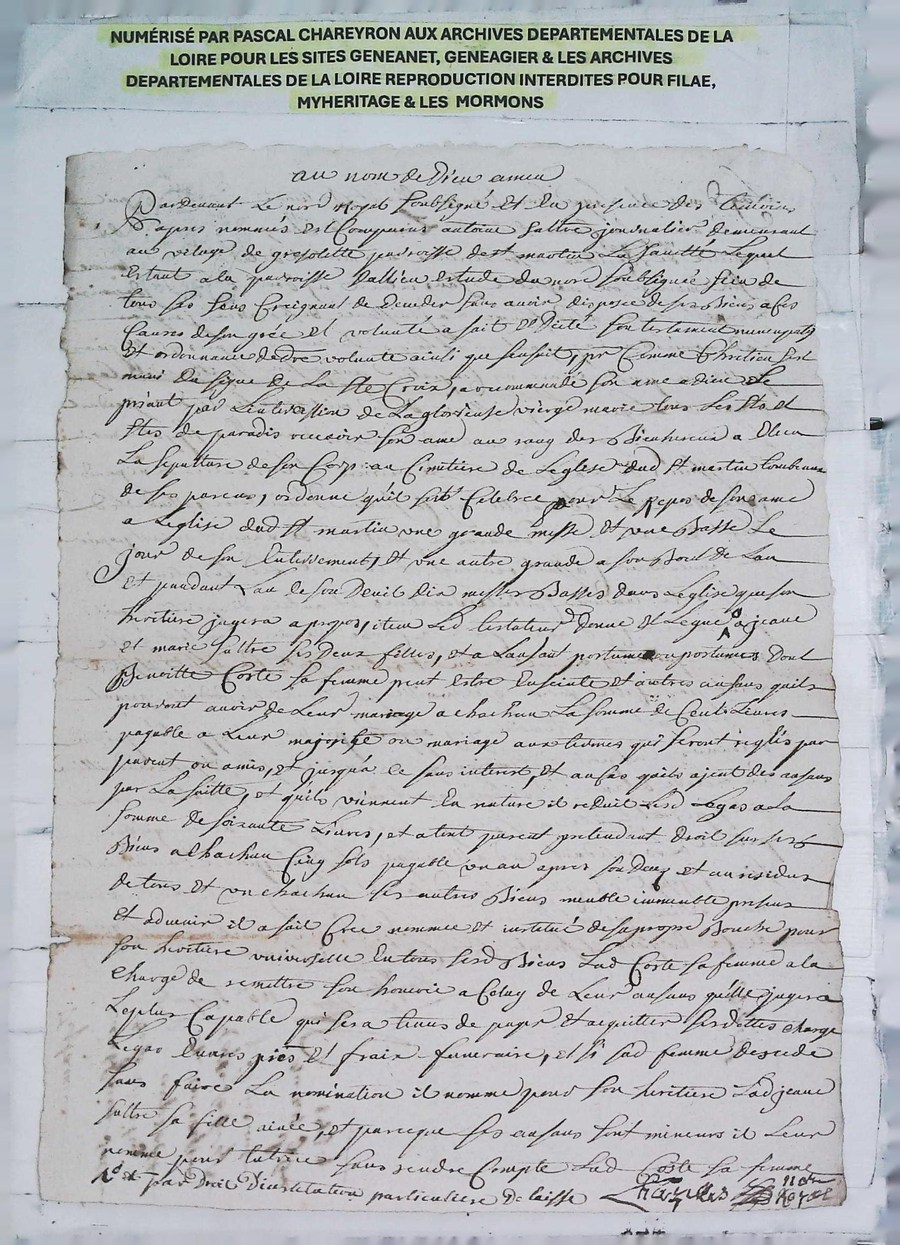 NUMÉRISÉ PAR PASCAL CHAREYRON AUX ARCHIVES DEPARTEMENTALES DE LA
LOIRE POUR LES SITES GENEANET, GENEAGIER & LES ARCHIVES
DEPARTEMENTALES DE LA LOIRE REPRODUCTION INTERDITES POUR FILAE,
MYHERITAGE & LES MORMONS
au nom de Dieu amen
Pardevant Le nore Royal soubsigné et En presence des
apres nommés est Comparut antoine journalier demeurant
au vilage de parroisse de st martin La Sauvetté Lequel
Estant a la parroisse Estude du nore soubsigné sein de
tous ses sens Craignant de deceder sans avoir disposé de ses Biens a Ces
Causes de son gré et volunté a fait et dicté son testament nuncupatif
Et ordonnance de volunté ainsi que sensuit, pr Comme Chretien sest
muni Du signe de La ste Croix, a recommandé son ame a dieu Le
priant par Lintercession de La glorieuse vierge marie tous les sts et
stes de paradis recevoir son ame au rang des Bienheureux a Eleu
La sepulture de son Corps au Cimetière de Leglise dud st martin tombeau
de ses parens, ordonne qu'il soit Celebré pour Le Repos de son ame
a Leglise dud st martin une grande messe et une Basse Le
jour de son Enterrement, et une autre grande a son Bout de Lan
Et pendant Lan de son Deuil dix messes Basses dans Leglise que son
heritiere jugera apropos, item Led testateur donne et Legue a jeane
et marie ses Deux filles, et a Lanfant postume ou postumes Dont
Benoitte Coste sa femme peut Estre Enceinte et autres anfans quils
pouront avoir de Leur mariage a chachun La somme de Cent Livres
payable a Leur majorité ou mariage aux termes qui seront reglés par
parent ou amis, et jusqua ce sans interest, et au Cas quils ajent des anfans
par La suitte, et quils viennent En nature il reduit Lesd Legas a la
somme de soixante Livres, et a tout parent pretendant droit sur ses
Biens a Chachun Cinq sols payable un an apres son Deces et au residu
de tous et un chachun ses autres Biens meuble immeuble presens
et advenir il a fait Creé nommée et institué de sa propre Bouche pour
son heritiere universelle En tous sesd Biens Lad Coste sa femme a la
charge de remettre son hoirie a Celuy de Leur anfans quelle jugera
Leplus Capable qui sera tenus de payer et acquitter ses dettes charge
Legas Euvres pies et fraix funeraire, et si sad femme decede
sans faire La nomination il nomme pour son heritiere Lad jeane
sa fille ainée, et parceque ses anfans sont mineurs il Leur
nomme pour tutrice sans rendre Compte Lad Coste sa femme
et par Droit Dinstitution particuliere De laisse